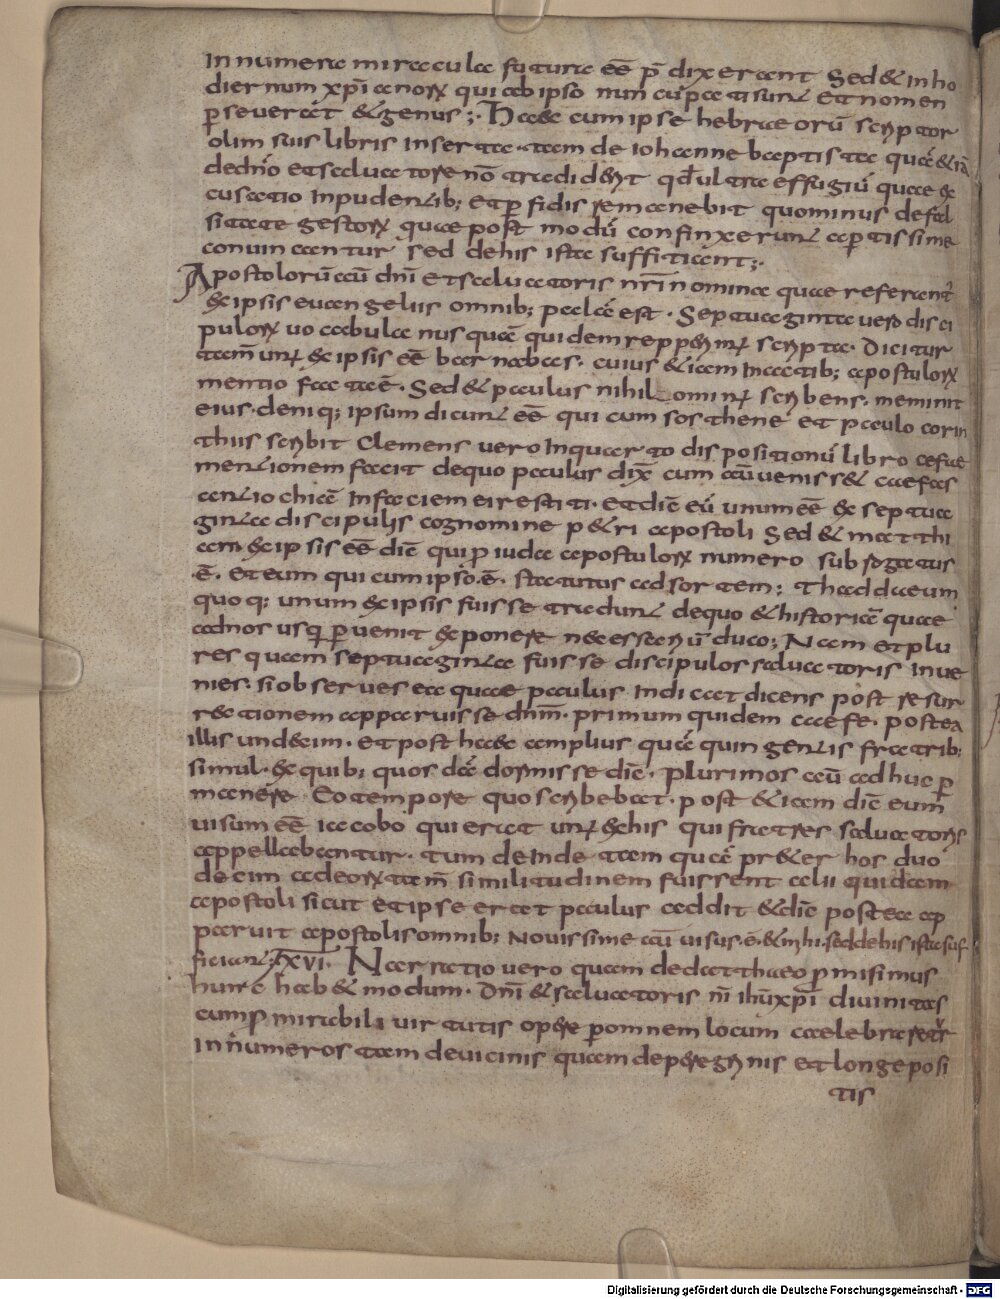 Innumera miracula futura eē p̄dixerant Sed & in ho
diernum xp̄ianorꝝ qui ab ipso nuncupati sunt et nomen
ꝑseverat & genus;· Haec cum ipse hebraeorū scriptor
olim suis libris inserta· tam de iohanne baptista quā &iā
de dn̄o et saluatore nō tradider̄t qd̄ ultra effugiū quae ex
cusatio inpudentib; et ꝑfidis remanebit quominus de fal
sitate gestorꝝ quae post modū confinxerunt apertissime
conuincantur sed de his ista sufficiant;·
Apostolorū aū dn̄i et saluatoris nr̄i nomina quae referant̄
ex ipsis euangeliis omnib; palā est· Septuaginta uero disci
pulorꝝ uocabula nusquā quidem repperiunt̄ scripta· Dicitur
tam̄ unꝰ ex ipsis eē barnabas· cuius &iam in actib; apostulorꝝ
mentio facta ē· Sed & paulus nihilominꝰ scribens· meminit
eius· deniq; ipsum dicunt eē qui cum sosthene et paulo corin
thiis scribit Clemens uero In quarto dispositionū libro cefae
mentionem facit de quo paulus dix̄ cum aū uenisset caefas
antiochiā In faciem ei restiti· et diē eū unum eē ex septua
ginta discipulis cognomine p&ri apostoli Sed & matthi
am ex ipsis eē diē qui ꝓ iuda apostulorꝝ numero subrogatus
·ē· et eum qui cum ipso ·ē· statutus ad sortem; Thaddaeum
quoq; unum ex ipsis fuisse tradunt de quo & historiā quae
ad nos usq; ꝑuenit exponere necessariū duco; Nam et plu
res quam septuaginta fuisse discipulos saluatoris inue
nies· si obserues ea quae paulus Indicat dicens post resur
rectionem apparuisse dn̄m· primum quidem caefe· postea
illis undecim· et post haec amplius quā quingentis fratrib;
simul· ex quib; quosdā dormisse diē· plurimos aū adhuc ꝑ
manere· Eo tempore quo scribebat· post &iam diē eum
uisum eē iacobo qui erat unꝰ ex his qui fratres saluatoris
appellabantur· tum deinde tam quā pr&er hos duo
decim ad eorꝝ tam̄ similitudinem fuissent alii quidam
apostoli sicut et ipse erat paulus addit & diē postea ap
paruit apostolis omnib; Nouissime aū uisus ·ē· & mihi· sed de his ista suf
ficiant;· xvi· Narratio uero quam de datthaeo ꝓmisimus
hunc hab& modum· Dn̄i & saluatoris nr̄i ih̄u xp̄i diuinitas
cum ꝓ mirabili uirtutis opere ꝑ omnem locum caelebraretr̄
innumeros tam de uicinis quam de peregrinis et longe posi
tis
Digitalisierung gefördert durch die Deutsche Forschungsgemeinschaft - DFG